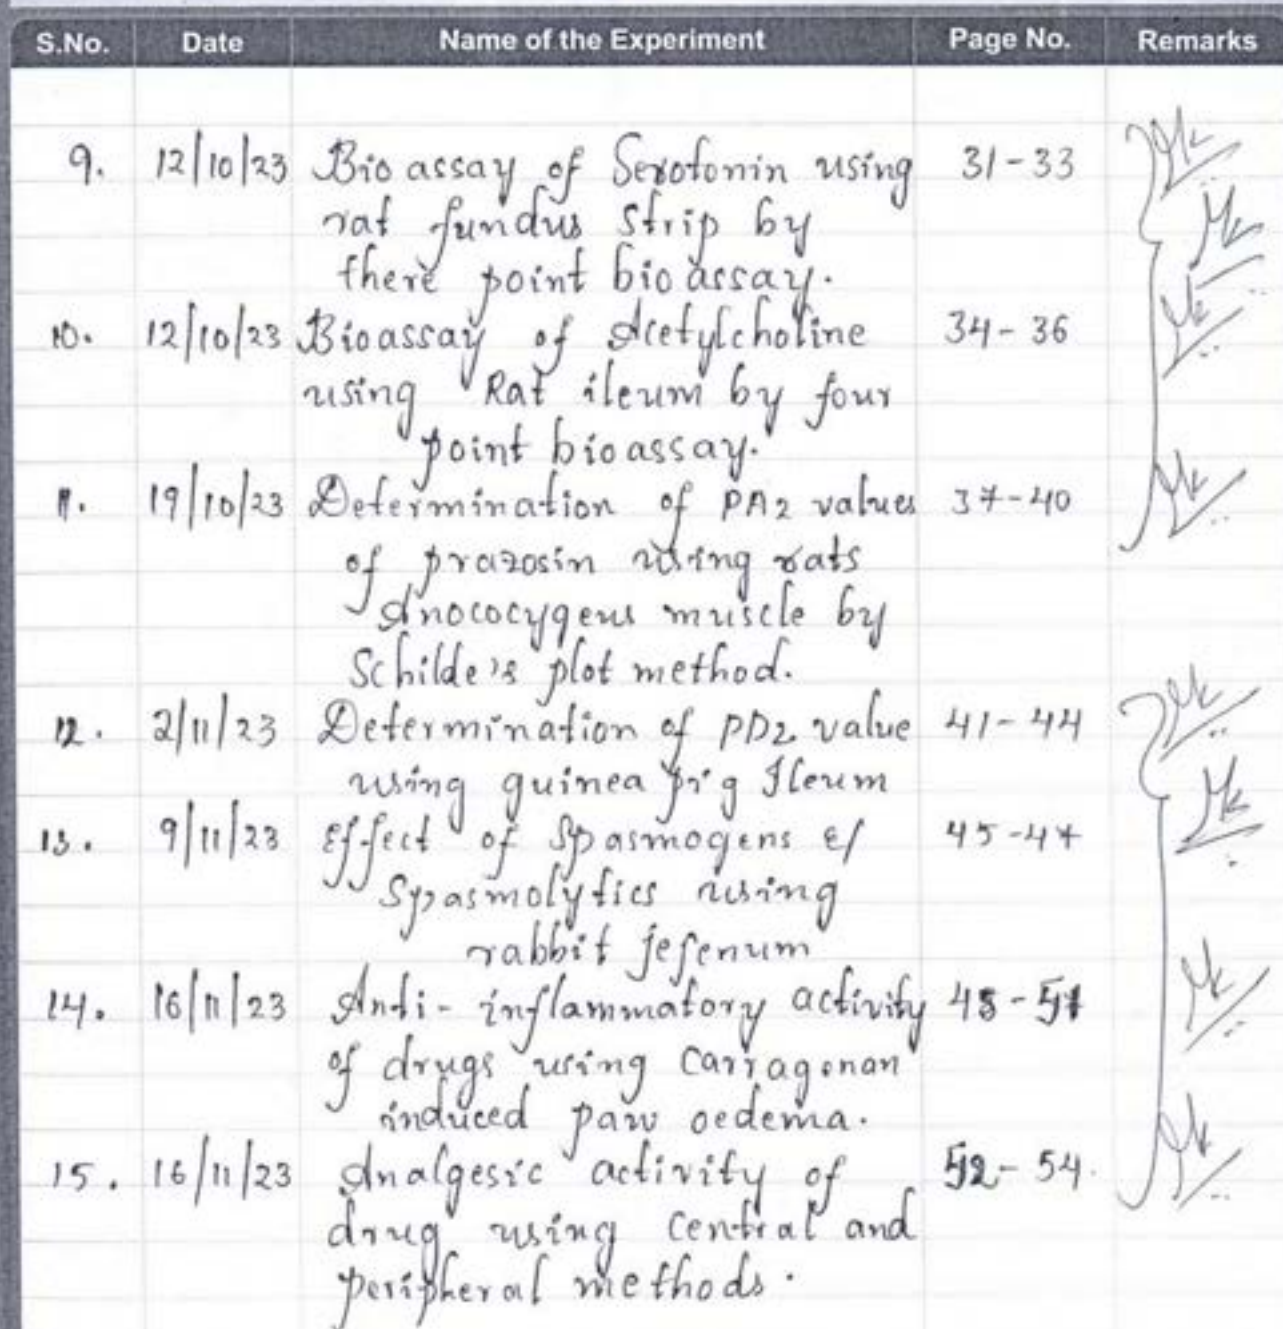 S.No. Date Name of the Experiment Page No. Remarks
9. 12/10/23 Bio assay of Serotonin using 31-33
rat fundus strip by
there point bio assay.
10. 12/10/23 Bioassay of Acetylcholine 34-36
using Rat ileum by four
point bioassay.
11. 19/10/23 Determination of PA2 values 37-40
of prazosin using rats
Anococygeus muscle by
Schilde's plot method.
12. 2/11/23 Determination of PD2 value 41-44
using guinea pig Ileum
13. 9/11/23 Effect of Spasmogens & 45-47
Spasmolytics using
rabbit jejenum
14. 16/11/23 Anti-inflammatory activity 48-51
of drugs using Carragenan
induced paw oedema.
15. 16/11/23 Analgesic activity of 52-54.
drug using Central and
peripheral methods.